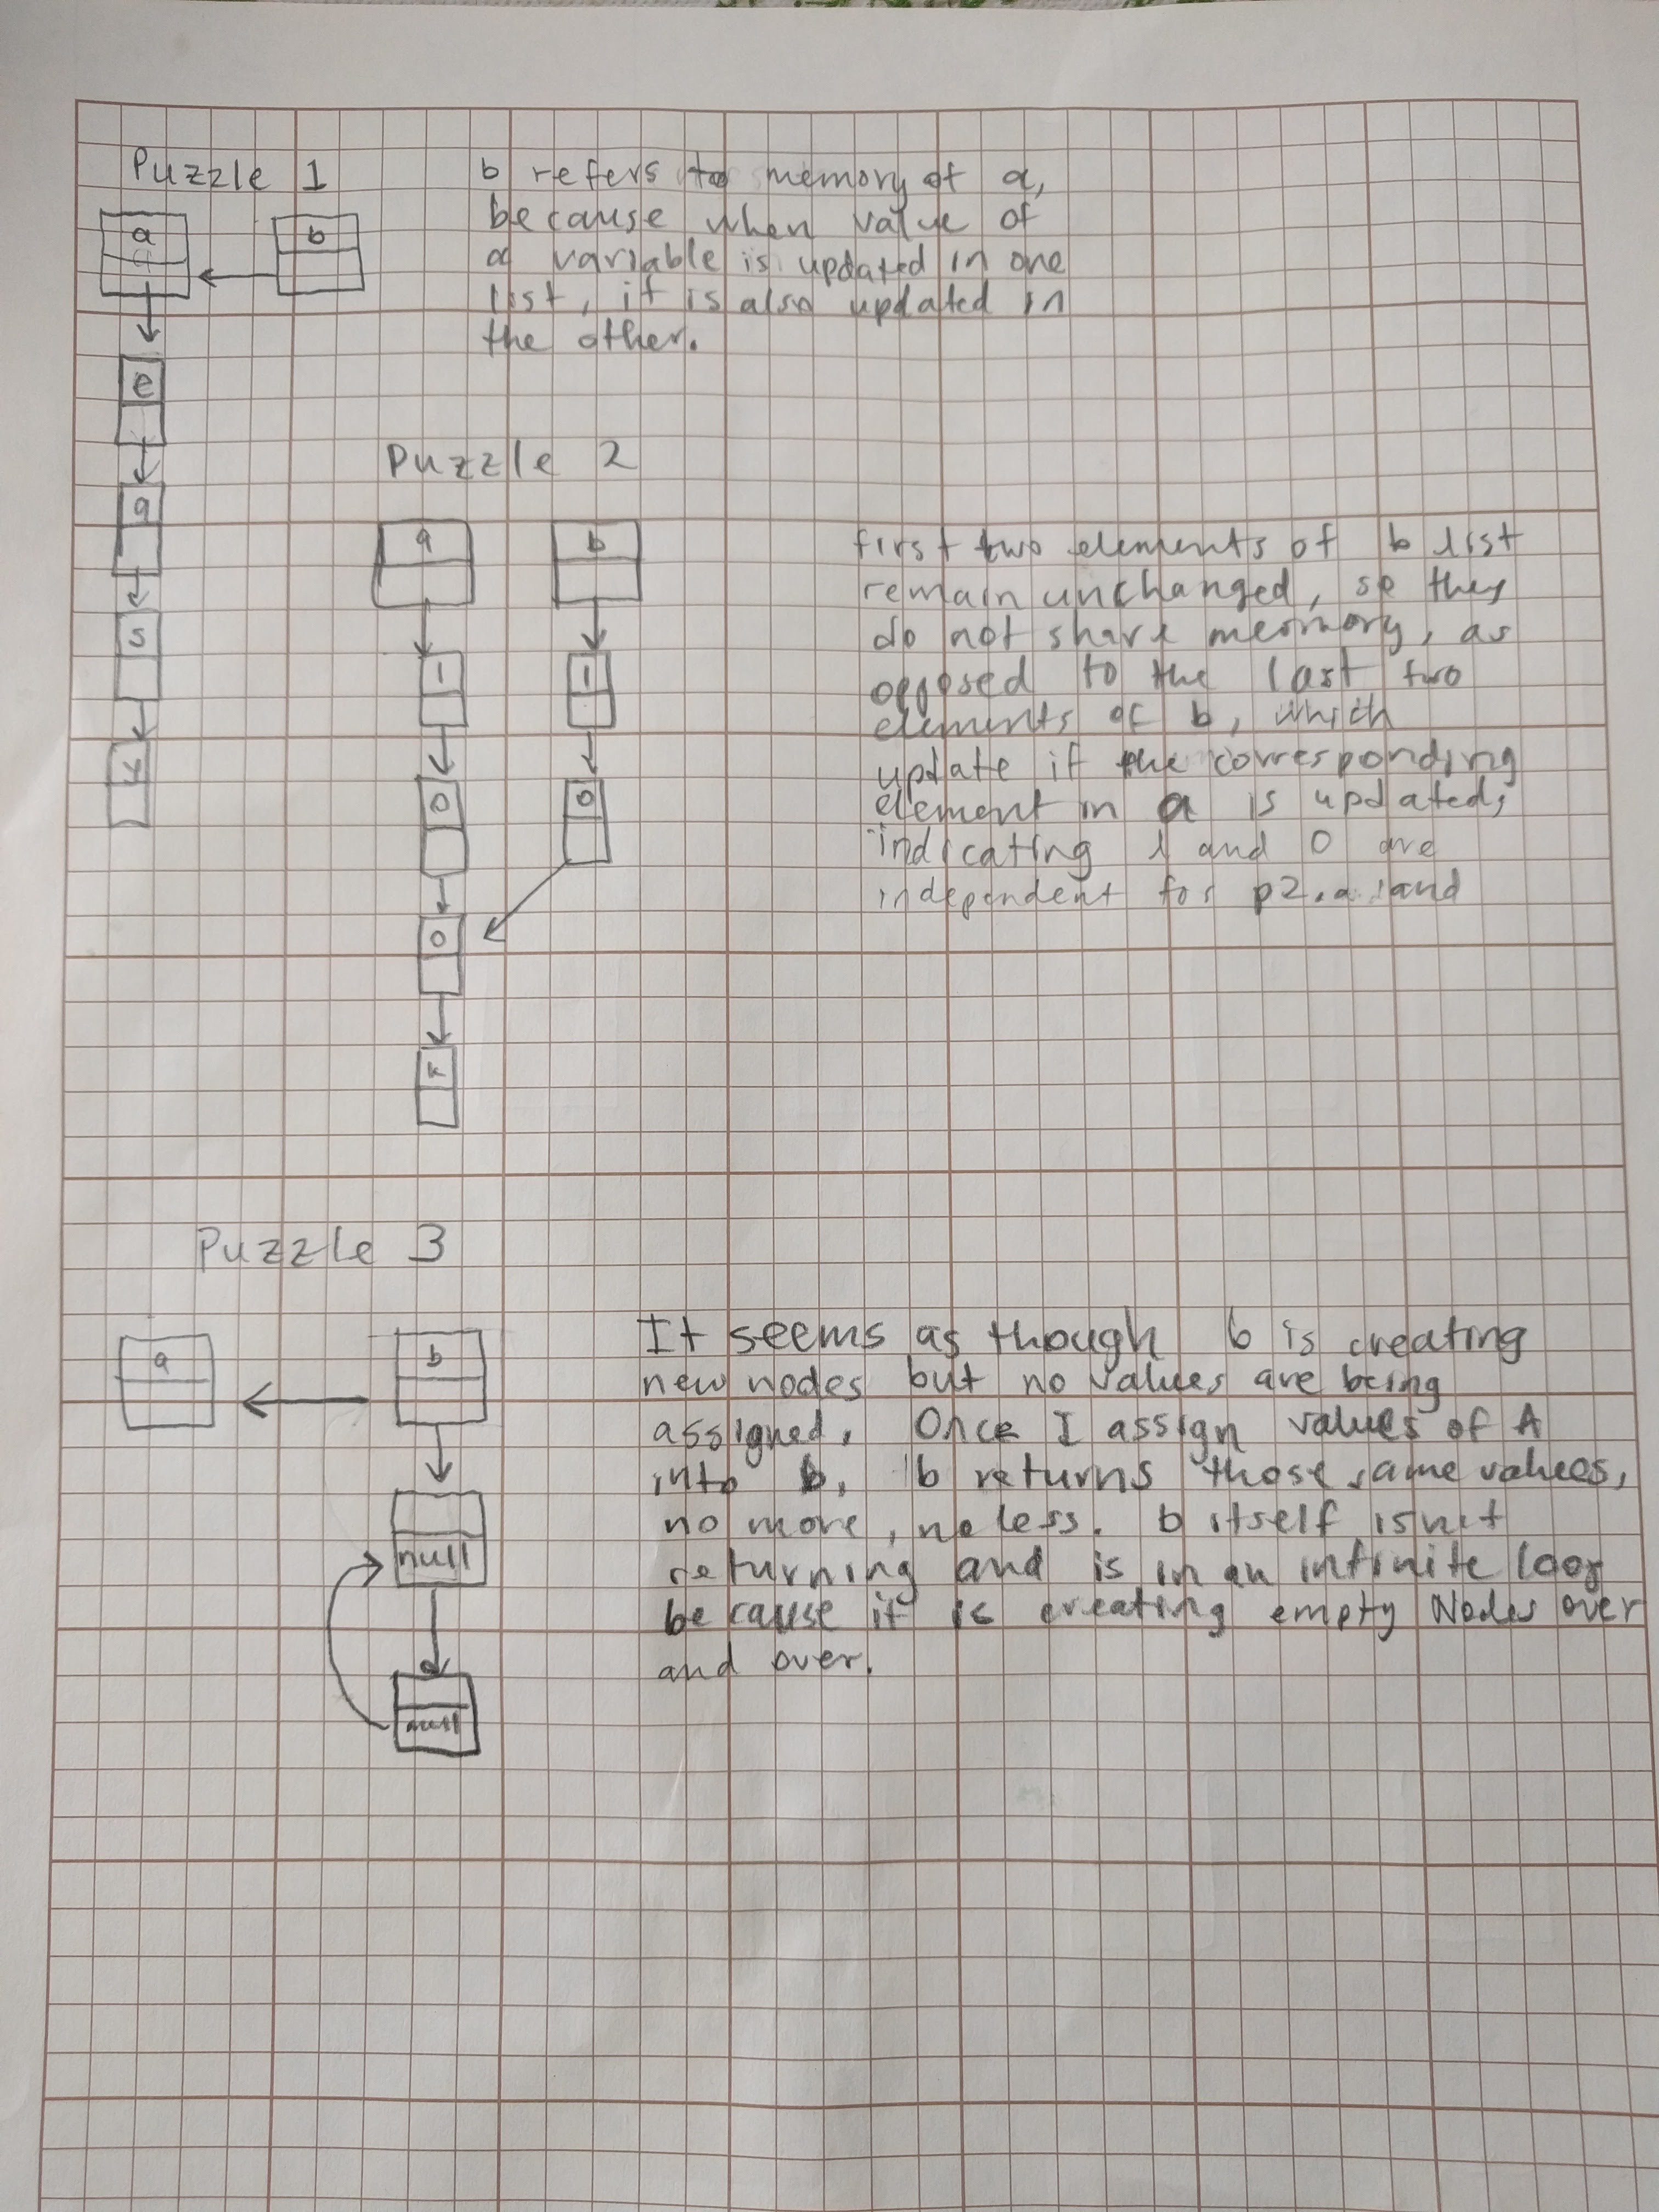 Puzzle 1
a
b
e
a
s
y
b refers to memory of a,
because when value of
a variable is updated in one
list, it is also updated in
the other.
Puzzle 2
a
b
l
o
o
k
l
o
first two elements of b list
remain unchanged, so they
do not share memmory, as
opposed to the last two
elements of b, which
update if the corresponding
element in a is updated,
indicating l and 0 are
independent for p2.a and
Puzzle 3
a
b
null
null
It seems as though b is creating
new nodes but no values are being
assigned. Once I assign values of A
into b, b returns those same values,
no more, no less. b itself isn't
returning and is in an infinite loop
because it is creating empty Nodes over
and over.